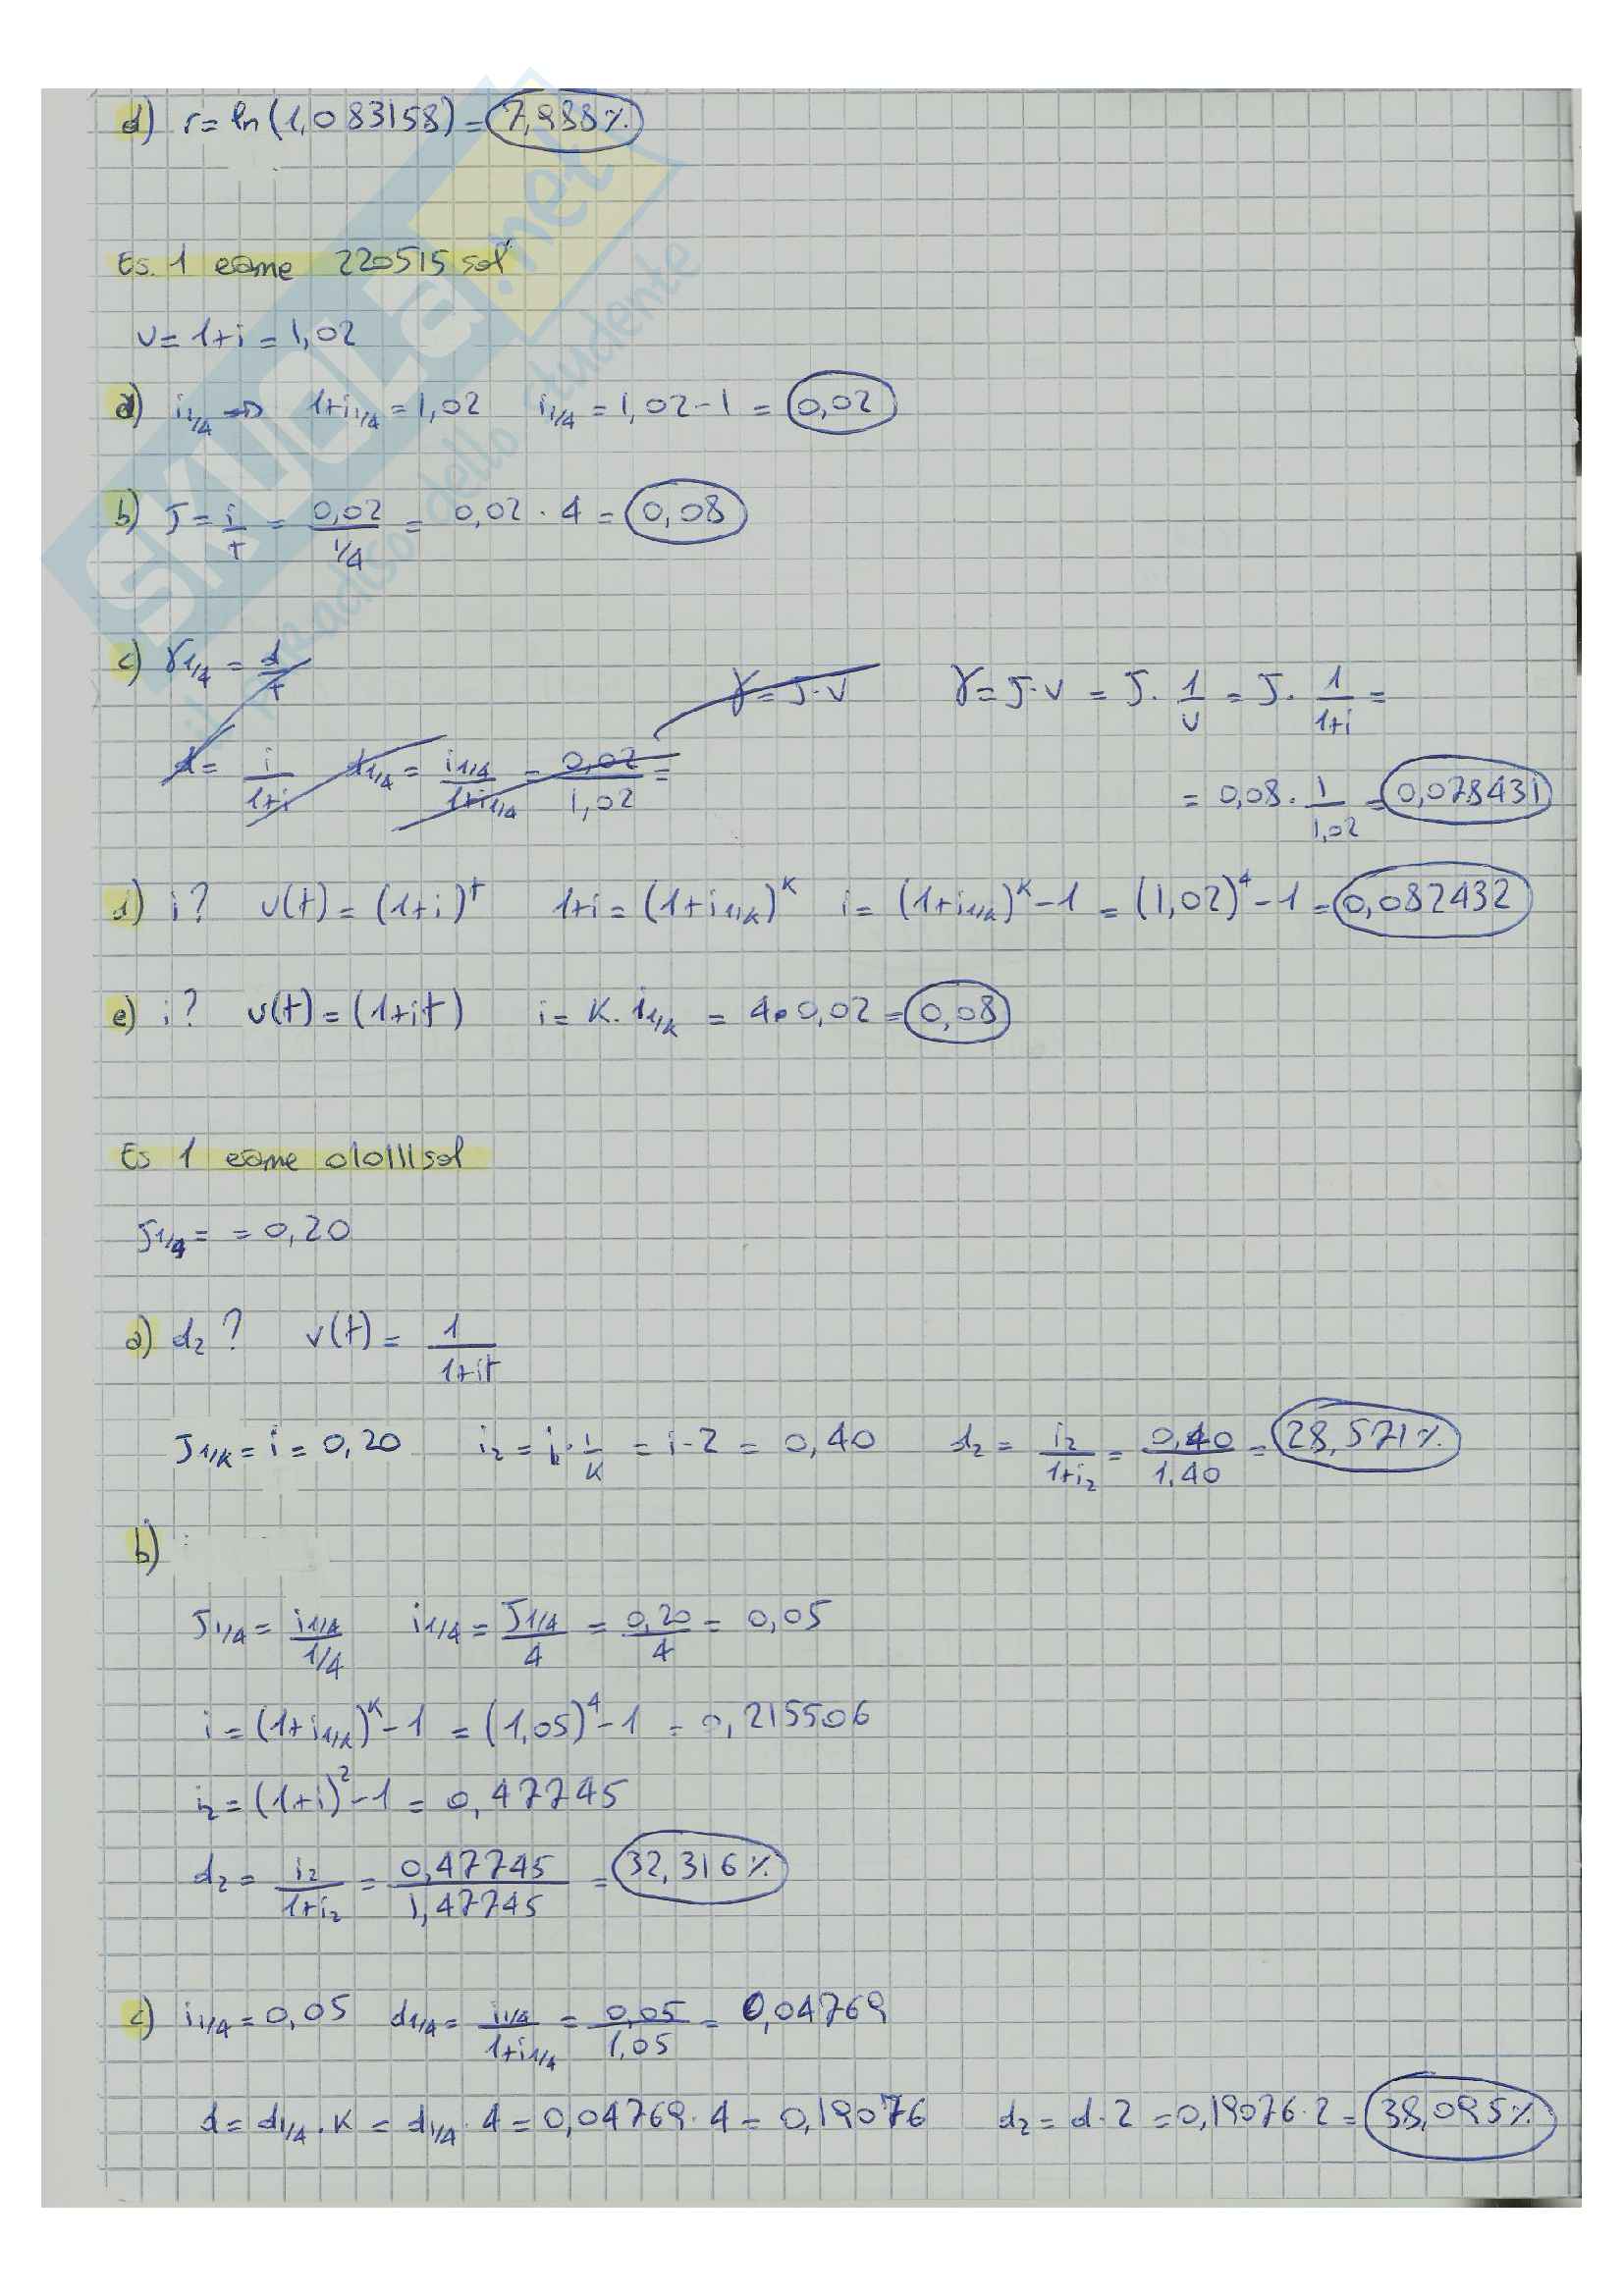 d) r = ln(1,083158) = 7,988%
Es. 1 esame 220515 sol
u = 1+i = 1,02
a) i1/4 → 1+i1/4 = 1,02 i1/4 = 1,02-1 = 0,02
b) J = i/t = 0,02/1/4 = 0,02 · 4 = 0,08
c) γ1/4 = d/t
γ = J·v γ = J·v = J · 1/u = J · 1/1+i =
d = i/1+i d1/4 = i1/4/1+i1/4 = 0,02/1,02 =
= 0,08 · 1/1,02 = 0,078431
d) i? u(t) = (1+i)^t 1+i = (1+i1/k)^k i = (1+i1/k)^k - 1 = (1,02)^4 - 1 = 0,082432
e) i? u(t) = (1+it) i = K · i1/k = 4 · 0,02 = 0,08
Es 1 esame 010111 sol
J1/4 = = 0,20
a) d2 ? v(t) = 1/1+it
J1/k = i = 0,20 i2 = i · 1/k = i · 2 = 0,40 d2 = i2/1+i2 = 0,40/1,40 = 28,571%
b)
J1/4 = i1/4/1/4 i1/4 = J1/4/4 = 0,20/4 = 0,05
i = (1+i1/k)^k - 1 = (1,05)^4 - 1 = 0,215506
i2 = (1+i)^2 - 1 = 0,47745
d2 = i2/1+i2 = 0,47745/1,47745 = 32,316%
c) i1/4 = 0,05 d1/4 = i1/4/1+i1/4 = 0,05/1,05 = 0,04769
d = d1/4 · K = d1/4 · 4 = 0,04769 · 4 = 0,19076 d2 = d · 2 = 0,19076 · 2 = 38,095%
SKUOLa.net
il paradiso dello studente